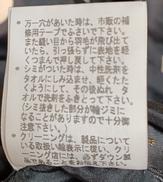 ・万一穴があいた時は、市販の補
修用テープでふさいで下さい。
また縫い目から羽毛が飛び出てい
たら、引っ張らずに表地を軽
くつまんで押し戻して下さい。
・シミがついた時は、中性洗剤を
タオルにしみ込ませ、軽くたた
くようにして、その後ぬれ
タオルで洗剤をふきとって下さい。
(シミ抜きした部分が輪ジミに
なることがありますので十分御
注意下さい。)
・クリーニングは、製品について
いる取扱い絵表示に従い、クリ
ーニング店には、必ずダウン製